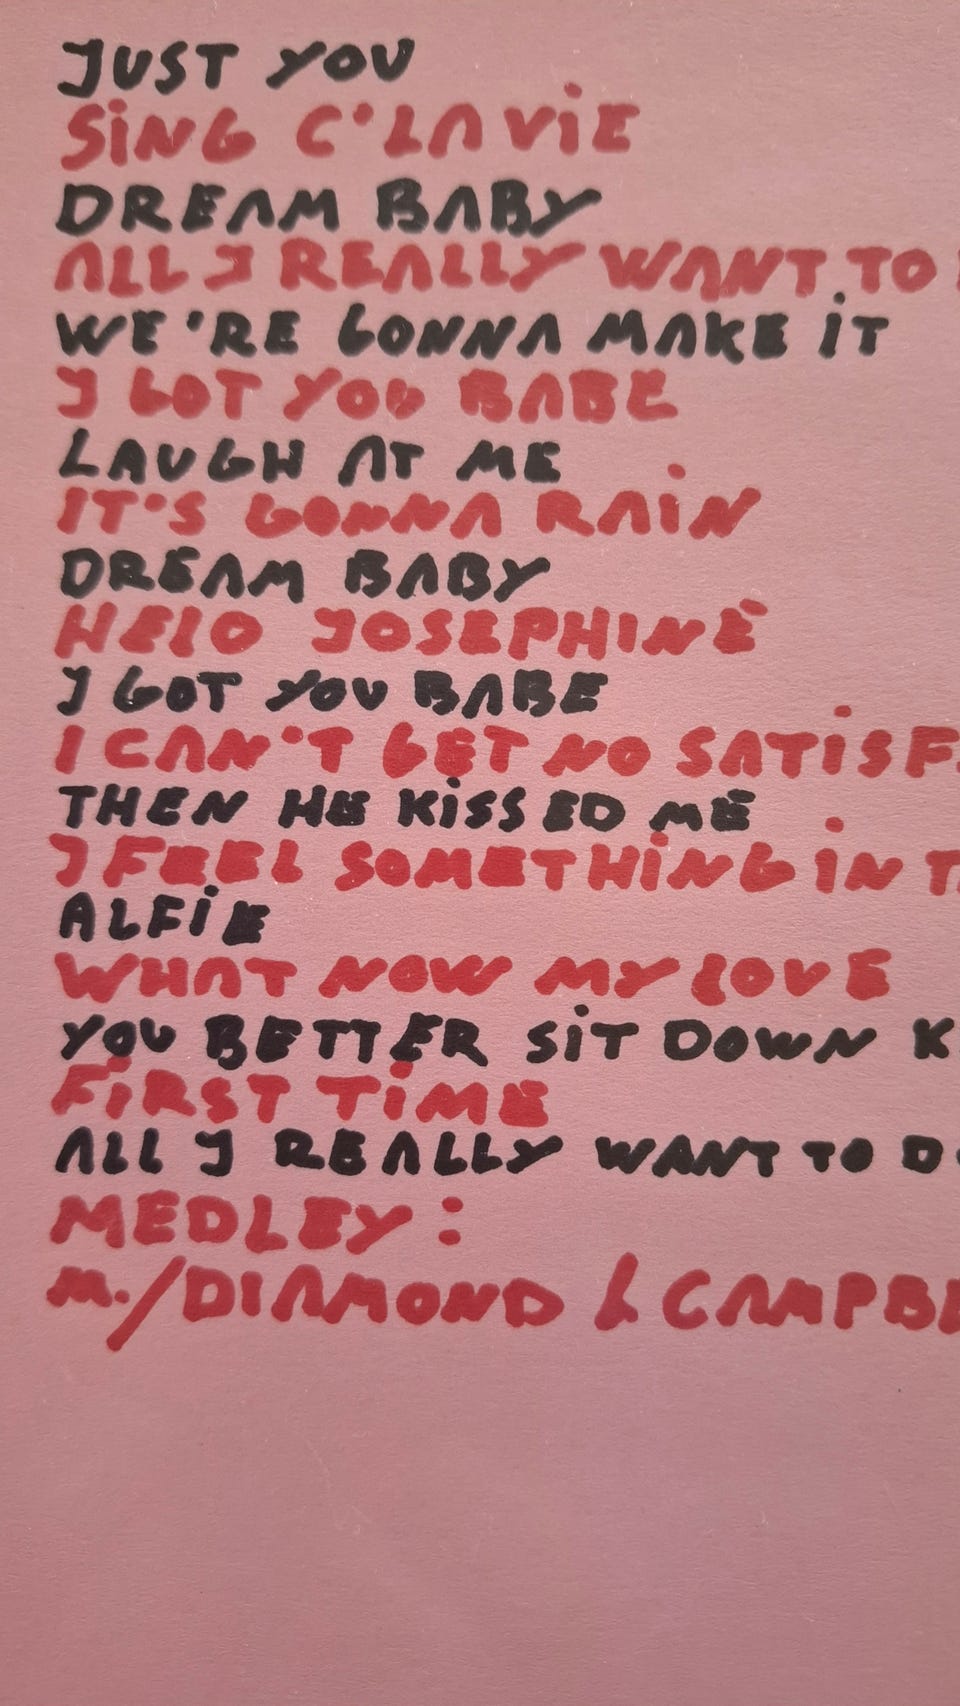 JUST YOU
SiNG C'LA ViE
DREAM BABY
ALL I REALLY WANT TO
WE'RE GONNA MAKE iT
I GOT YOU BABE
LAUGH AT ME
IT'S GONNA RAiN
DREAM BABY
HELO JOSEPHINE
I GOT YOU BABE
I CAN'T GET NO SATiSF
THEN HE KiSSED ME
I FEEL SOMETHiNG iN T
ALFiE
WHAT NOW MY LOVE
YOU BETTER SiT DOWN K
FiRST TiME
ALL I REALLY WANT TO D
MEDLEY:
M./DIAMOND & CAMPBE